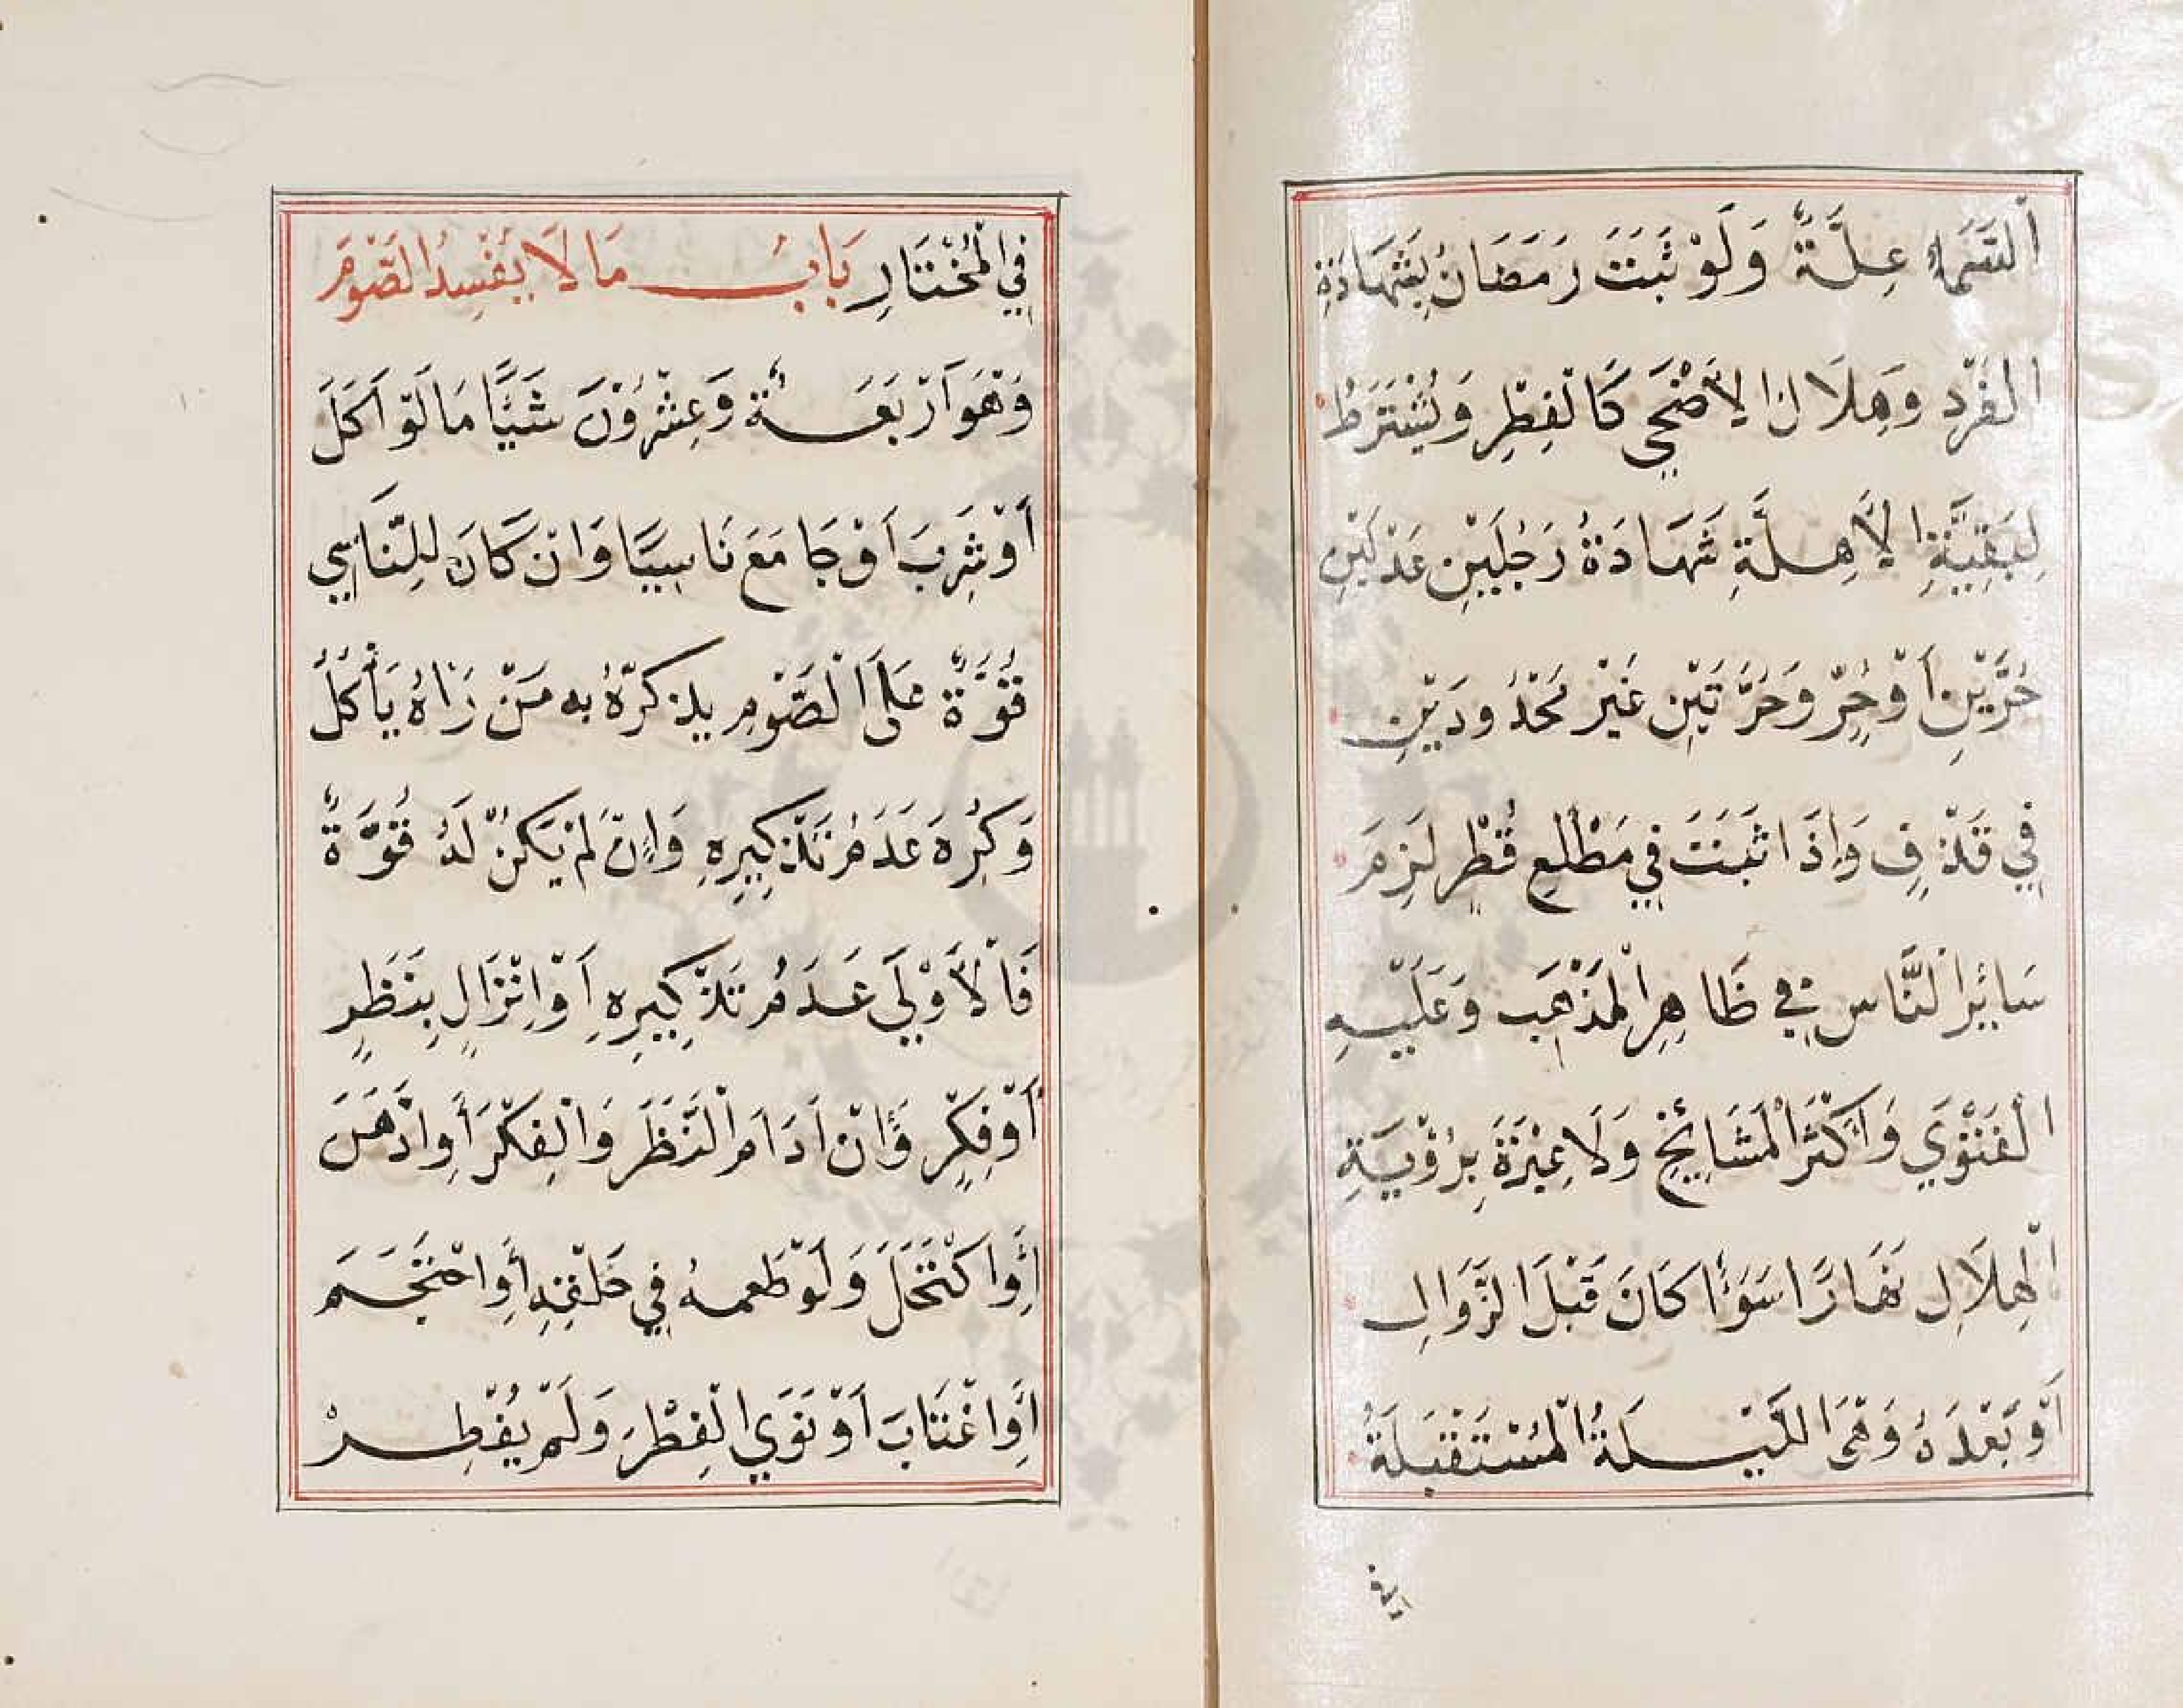 اَلسَّمَاءِ عِلَّةٌ وَلَوْ ثَبَتَ رَمَضَانُ بِشَهَادَةِ
الفَرْدِ وَهِلَالُ الْاَضْحٰي كَالْفِطْرِ وَيُشْتَرَطُ
لِبَقِيَّةِ الْاَهِلَّةِ شَهَادَةُ رَجُلَيْنِ عَدْلَيْنِ
حُرَّيْنِ اَوْحُرٍّ وَحُرَّتَيْنِ غَيْرَ مَحْدُودَيْنِ
فِي قَذْفٍ وَاِذَا ثَبَتَ فِي مَطْلِعِ قُطْرٍ لَزِمَ
سَائِرَ النَّاسِ فِي ظَاهِرِ الْمَذْهَبِ وَعَلَيْهِ
الْفَتْوَي وَاَكْثَرُ الْمَشَايِخِ وَلَا عِبْرَةَ بِرُؤْيَةِ
الْهِلَالِ نَهَارًا سَوَءًا كَانَ قَبْلَ الزَّوَالِ
اَوْ بَعْدَهُ وَهِيَ اللَّيْلَةُ الْمُسْتَقْبَلَةُ
فِي الْمُخْتَارِ بَابُ مَالَا يُفْسِدُ الصَّوْمَ
وَهُوَ اَرْبَعَةٌ وَعِشْرُوْنَ شَيْئًا مَالَوْ اَكَلَ
أَوْ شَرِبَ اَوْ جَامَعَ نَاسِيًا وَاِنْ كَانَ لِلنَّاسِي
قُوَّةٌ عَلَى الْصَّوْمِ يذكرّهُ به مَنْ رَاٰهُ يَأْكُلُ
وَكُرِهَ عَدَمُ تَذْكِيرِهِ وَاِنْ لَمْ يَكُنْ لَهُ قُوَّةٌ
فَالْاَوْلَي عَدَمُ تَذْكِيرِهِ اَوْ اِنْزَالٍ بِنَظَرٍ
أَوْفِكْرٍ وَاِنْ اَدَامَ النَّظَرَ وَالْفِكْرَ أَوِادَّهَنَ
أَوِاكْتَحَلَ وَلَوْ طَعمهُ فِي حَلْقِهِ أَوِاحْتَجَمَ
أَوِاغْتَابَ اَوْ نَوَي الْفِطْرَ وَلَمْ يُفْطِرْ